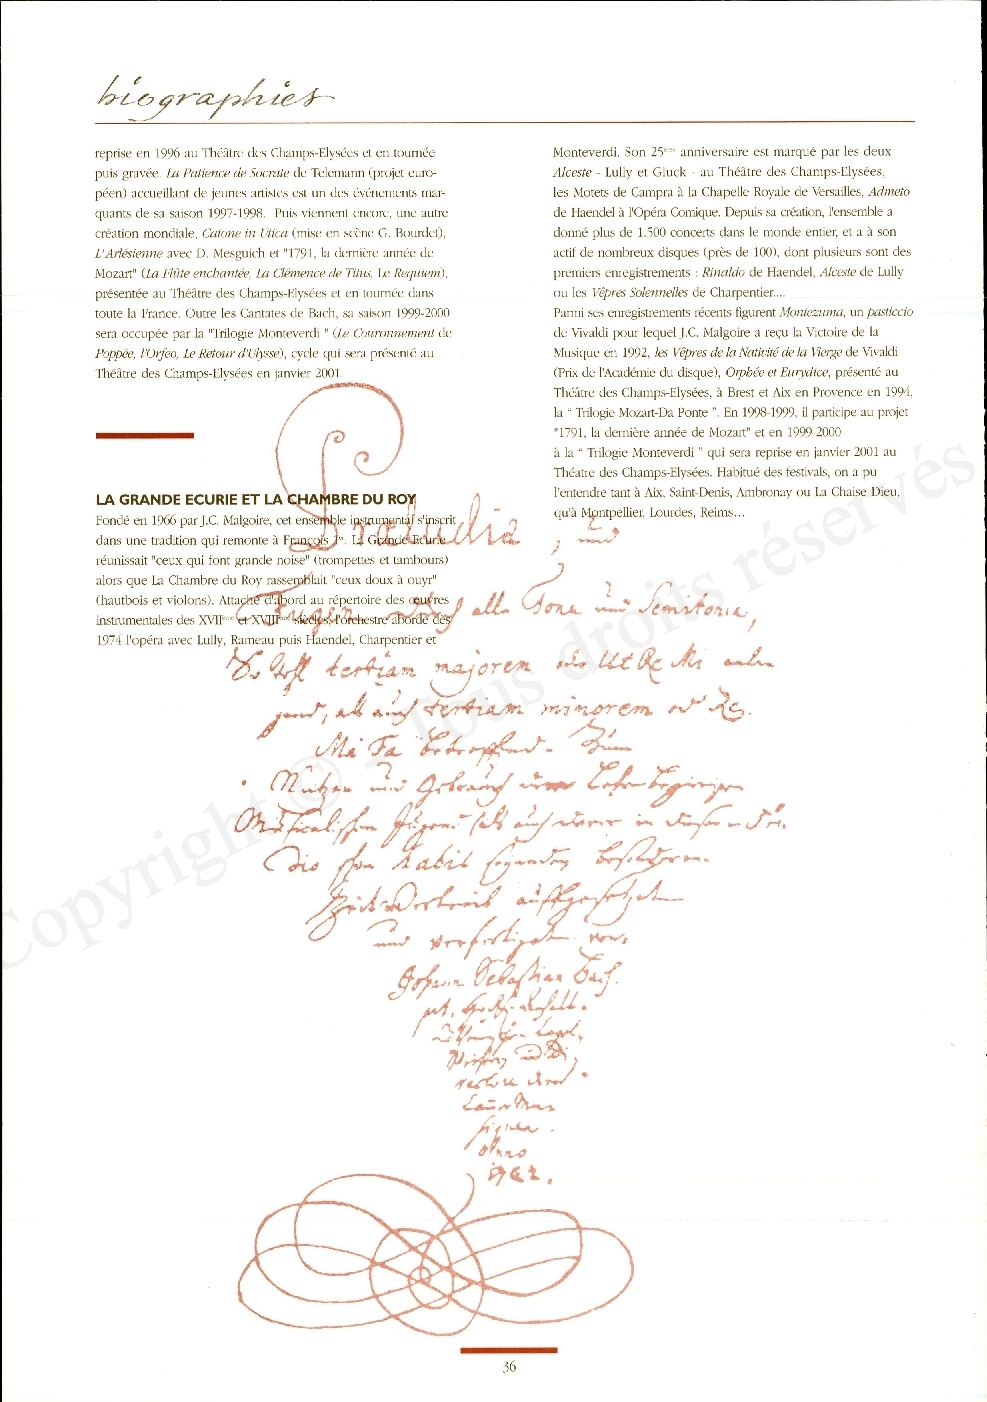 biographies
reprise en 1996 au Théâtre des Champs-Elysées et en tournée
puis gravée. La Patience de Socrate de Telemann (projet euro-
péen) accueillant de jeunes artistes est un des événements mar-
quants de sa saison 1997-1998. Puis viennent encore, une autre
création mondiale, Catone in Utica (mise en scène G. Bourdet),
L'Arlésienne avec D. Mesguich et "1791, la dernière année de
Mozart" (La Flûte enchantée, La Clémence de Titus, Le Requiem),
présentée au Théâtre des Champs-Elysées et en tournée dans
toute la France. Outre les Cantates de Bach, sa saison 1999-2000
sera occupée par la "Trilogie Monteverdi " (Le Couronnement de
Poppée, l'Orfeo, Le Retour d'Ulysse), cycle qui sera présenté au
Théâtre des Champs-Elysées en janvier 2001.
LA GRANDE ECURIE ET LA CHAMBRE DU ROY
Fondé en 1966 par J.C. Malgoire, cet ensemble instrumental s'inscrit
dans une tradition qui remonte à François Ier. La Grande Ecurie
réunissait "ceux qui font grande noise" (trompettes et tambours)
alors que La Chambre du Roy rassemblait "ceux doux à ouyr"
(hautbois et violons). Attaché d'abord au répertoire des œuvres
instrumentales des XVIIème et XVIIIème siècles, l'orchestre aborde dès
1974 l'opéra avec Lully, Rameau puis Haendel, Charpentier et
Monteverdi. Son 25ème anniversaire est marqué par les deux
Alceste - Lully et Gluck - au Théâtre des Champs-Elysées,
les Motets de Campra à la Chapelle Royale de Versailles, Admeto
de Haendel à l'Opéra Comique. Depuis sa création, l'ensemble a
donné plus de 1.500 concerts dans le monde entier, et a à son
actif de nombreux disques (près de 100), dont plusieurs sont des
premiers enregistrements : Rinaldo de Haendel, Alceste de Lully
ou les Vêpres Solennelles de Charpentier....
Parmi ses enregistrements récents figurent Montezuma, un pasticcio
de Vivaldi pour lequel J.C. Malgoire a reçu la Victoire de la
Musique en 1992, les Vêpres de la Nativité de la Vierge de Vivaldi
(Prix de l'Académie du disque), Orphée et Eurydice, présenté au
Théâtre des Champs-Elysées, à Brest et Aix en Provence en 1994,
la " Trilogie Mozart-Da Ponte ". En 1998-1999, il participe au projet
"1791, la dernière année de Mozart" et en 1999-2000
à la " Trilogie Monteverdi " qui sera reprise en janvier 2001 au
Théatre des Champs-Elysées. Habitué des festivals, on a pu
l'entendre tant à Aix, Saint-Denis, Ambronay ou La Chaise Dieu,
qu'à Montpellier, Lourdes, Reims...
Praeludia, und
Fugen durch alle Tone und Semitonia,
tertiam majorem Ut Re Mi
als auch tertiam minorem Re
Mi Fa betreffend. Zum
Nutzen und Gebrauch der Lehrbegierigen
Musicalischen Jugend als auch derer in diesem
habil besonderen
Zeitvertreib auffgesetzet
und verfertiget von
Johann Sebastian Bach
Anno
1722.
Copyright © - Tous droits réservés
36